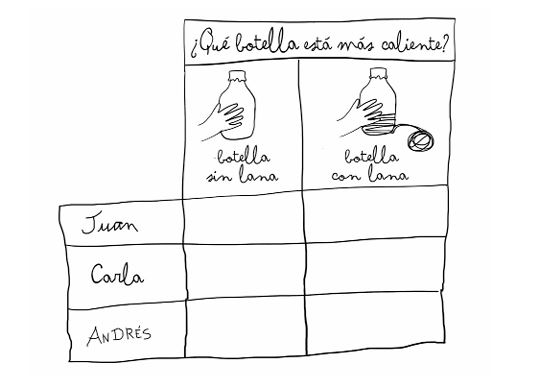 ¿Qué botella está más caliente?
botella
sin lana
botella
con lana
Juan
Carla
ANDRÉS